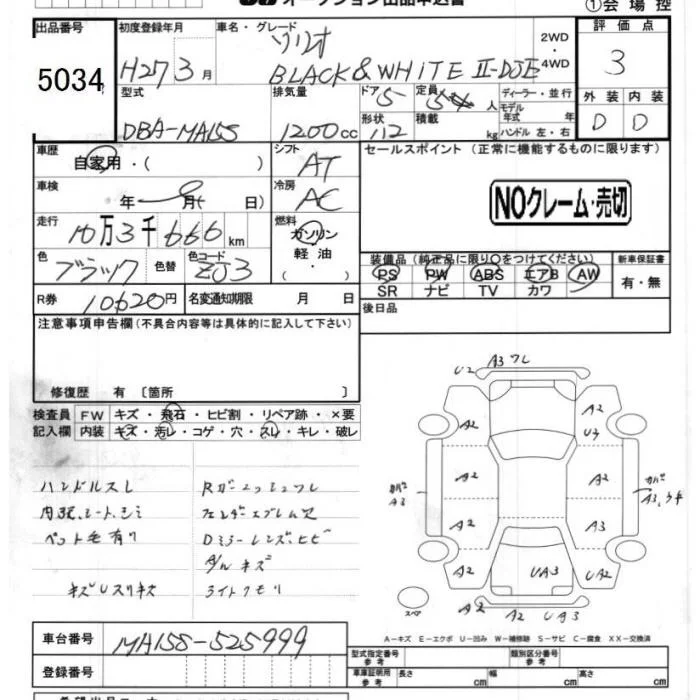 オークション出品申込書
①会場控
出品番号 初度登録年月 車名・グレード 2WD・4WD 評価点
5034 H27 3月 ソリオ BLACK & WHITE Ⅱ-DJE 3
型式 排気量 ドア 5 定員 5 人 ディーラー・並行 外装 内装
モデル年式 年
DBA-MA15S 1200cc 形状 112 積載 kg ハンドル 左・右 D D
車歴 自家用・( ) シフト AT セールスポイント (正常に機能するものに限ります)
車検 年 月( 日) 冷房 AC NOクレーム・売切
走行 10万3千666km 燃料 ガソリン
軽油
装備品(純正品に限り○をつけてください) 新車保証書
色 ブラック 色替 色コード ZJ3 PS PW ABS エアB AW 有・無
SR ナビ TV カワ
R券 10620円 名変通知期限 月 日 後日品
注意事項申告欄(不具合内容等は具体的に記入して下さい)
修復歴 有〔箇所 〕
検査員 FW キズ・飛石・ヒビ割・リペア跡・×要
記入欄 内装 キズ・汚レ・コゲ・穴・スレ・キレ・破レ
ハンドルスレ
内張、シート、シミ
ペット毛有り
キズUスリキズ
フェンダーエンブレム欠
Dミラーレンズ、ヒビ
ライトクモリ
U2 A3 フレ
A2 A2
U3
A2 A2
カバ A3 カバ A3、
A2 A3
A2 UA3 UA2
スペア A2 A2 UA3
A-キズ E-エクボ U-凹み W-補修跡 S-サビ C-腐食 XX-交換済
車台番号 MA15S-525999
型式指定番号 参考 類別区分番号 参考
登録番号 車庫証明用 参考 長さ cm 幅 cm 高さ cm